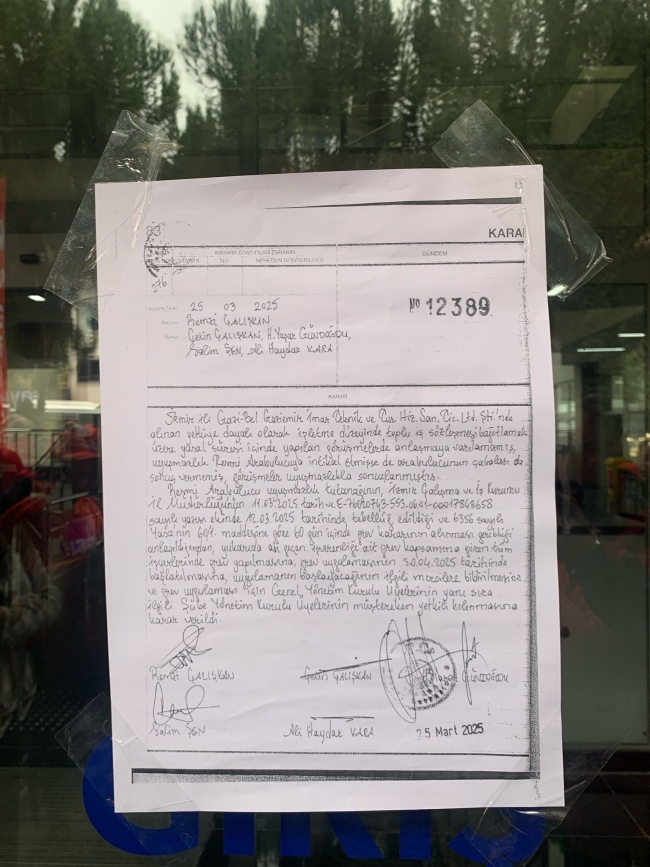 KARA
KARARA ESAS OLAN EVRAKIN
GÜNDEM
TARİH
NO
NEREDEN GÖNDERİLDİĞİ
276
25 03 2025
No 12389
Remzi ÇALIŞKAN
Çetin ÇALIŞKAN, H. Yaşar GÜNDOĞDU,
Salim ŞEN, Ali Haydar KARA
KARAR
İzmir ili Gazi-Bel Gaziemir İmar Teknik ve Tur. Hiz. San. Tic. Ltd. Şti'nde
alınan yetkiye dayalı olarak işletme düzeyinde toplu iş sözleşmesi bağıtlamak
üzere yasal süresi içinde yapılan görüşmelerde anlaşmaya varılamamış,
uyuşmazlık Resmi Arabulucuya intikal etmişse de arabulucunun çabaları da
sonuç vermemiş, görüşmeler uyuşmazlıkla sonuçlanmıştır.
Resmi Arabulucu uyuşmazlık tutanağının, İzmir Çalışma ve İş Kurumu
İl Müdürlüğünün 11.03.2025 tarih ve
sayılı yazısı ekinde 12.03.2025 tarihinde tebellüğ edildiği ve 6356 sayılı
Yasa'nın 60/1. maddesine göre 60 gün içinde grev kararının alınması gerektiği
anlaşıldığından, yukarıda adı geçen işverenliğe ait grev kapsamına giren tüm
işyerlerinde grev yapılmasına, grev uygulamasının 30.04.2025 tarihinde
başlatılmasına, uygulamanın başlayacağının ilgili mercilere bildirilmesine
ve grev uygulaması için Genel Yönetim Kurulu Üyelerinin yanı sıra
ilgili Şube Yönetim Kurulu Üyelerinin müştereken yetkili kılınmasına
karar verildi.
Remzi ÇALIŞKAN
Çetin ÇALIŞKAN
H. Yaşar GÜNDOĞDU
Salim ŞEN
Ali Haydar KARA
25 Mart 2025
GİRİŞ